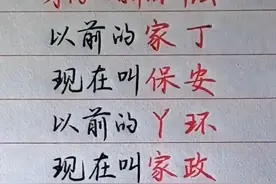 以前的家丁
现在叫保安
以前的丫环
现在叫家政